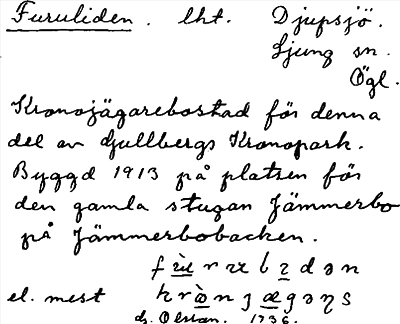 Furuliden. lht. Djupsjö.
Ljung sn.
Ögl.
Kronojägarebostad för denna
del av Gullbergs Kronopark.
Byggd 1913 på platsen för
den gamla stugan Jämmerbo
på Jämmerbobacken.
el. mest
G. Olsson. 1936.